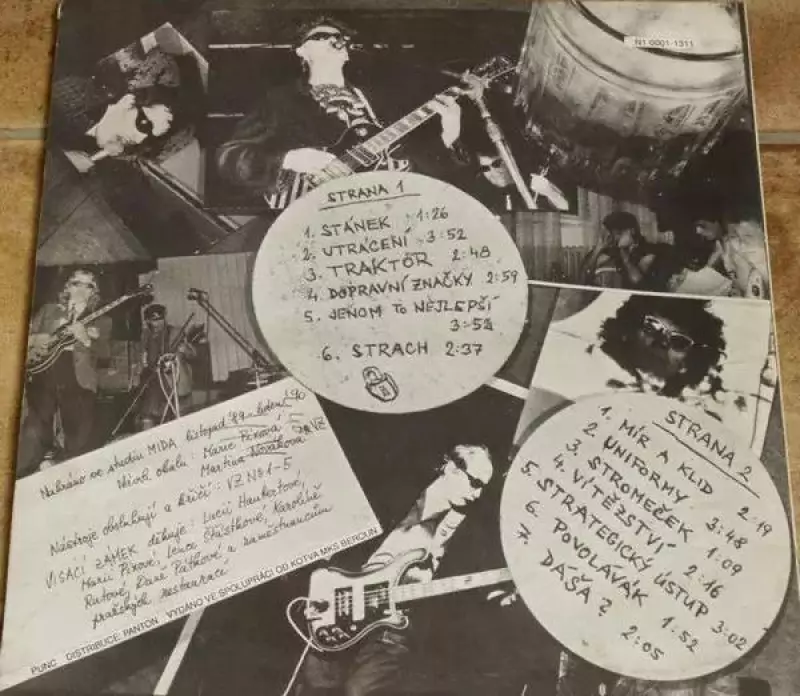 N1 0001-1311
STRANA 1
1. STÁNEK 1:26
2. UTRÁCENÍ 3:52
3. TRAKTOR 2:48
4. DOPRAVNÍ ZNAČKY 2:59
5. JENOM TO NEJLEPŠÍ
3:52
6. STRACH 2:37
Nahráno ve studiu MIDA listopad 89 - leden 90
Návrh obalu: Marie Píxová
Martina Nováková
Nástroje obsluhují a křičí: VZ No 1-5
VISACÍ ZÁMEK děkuje: Lucii Hankertové,
Marii Píxové, Lence Šťástkové, Karolíně
Rutové, Daně Pátkové a zaměstnancům
pražských restaurací
PUNC DISTRIBUCE PANTON VYDÁNO VE SPOLUPRÁCI OD KOTVA MKS BEROUN
STRANA 2
1. MÍR A KLID 2:19
2. UNIFORMY 3:48
3. STROMEČEK 1:09
4. VÍTĚŽSTVÍ 2:16
5. STRATEGICKÝ ÚSTUP 3:02
6. POVOLÁVÁK 1:52
7. DÁŠA? 2:05